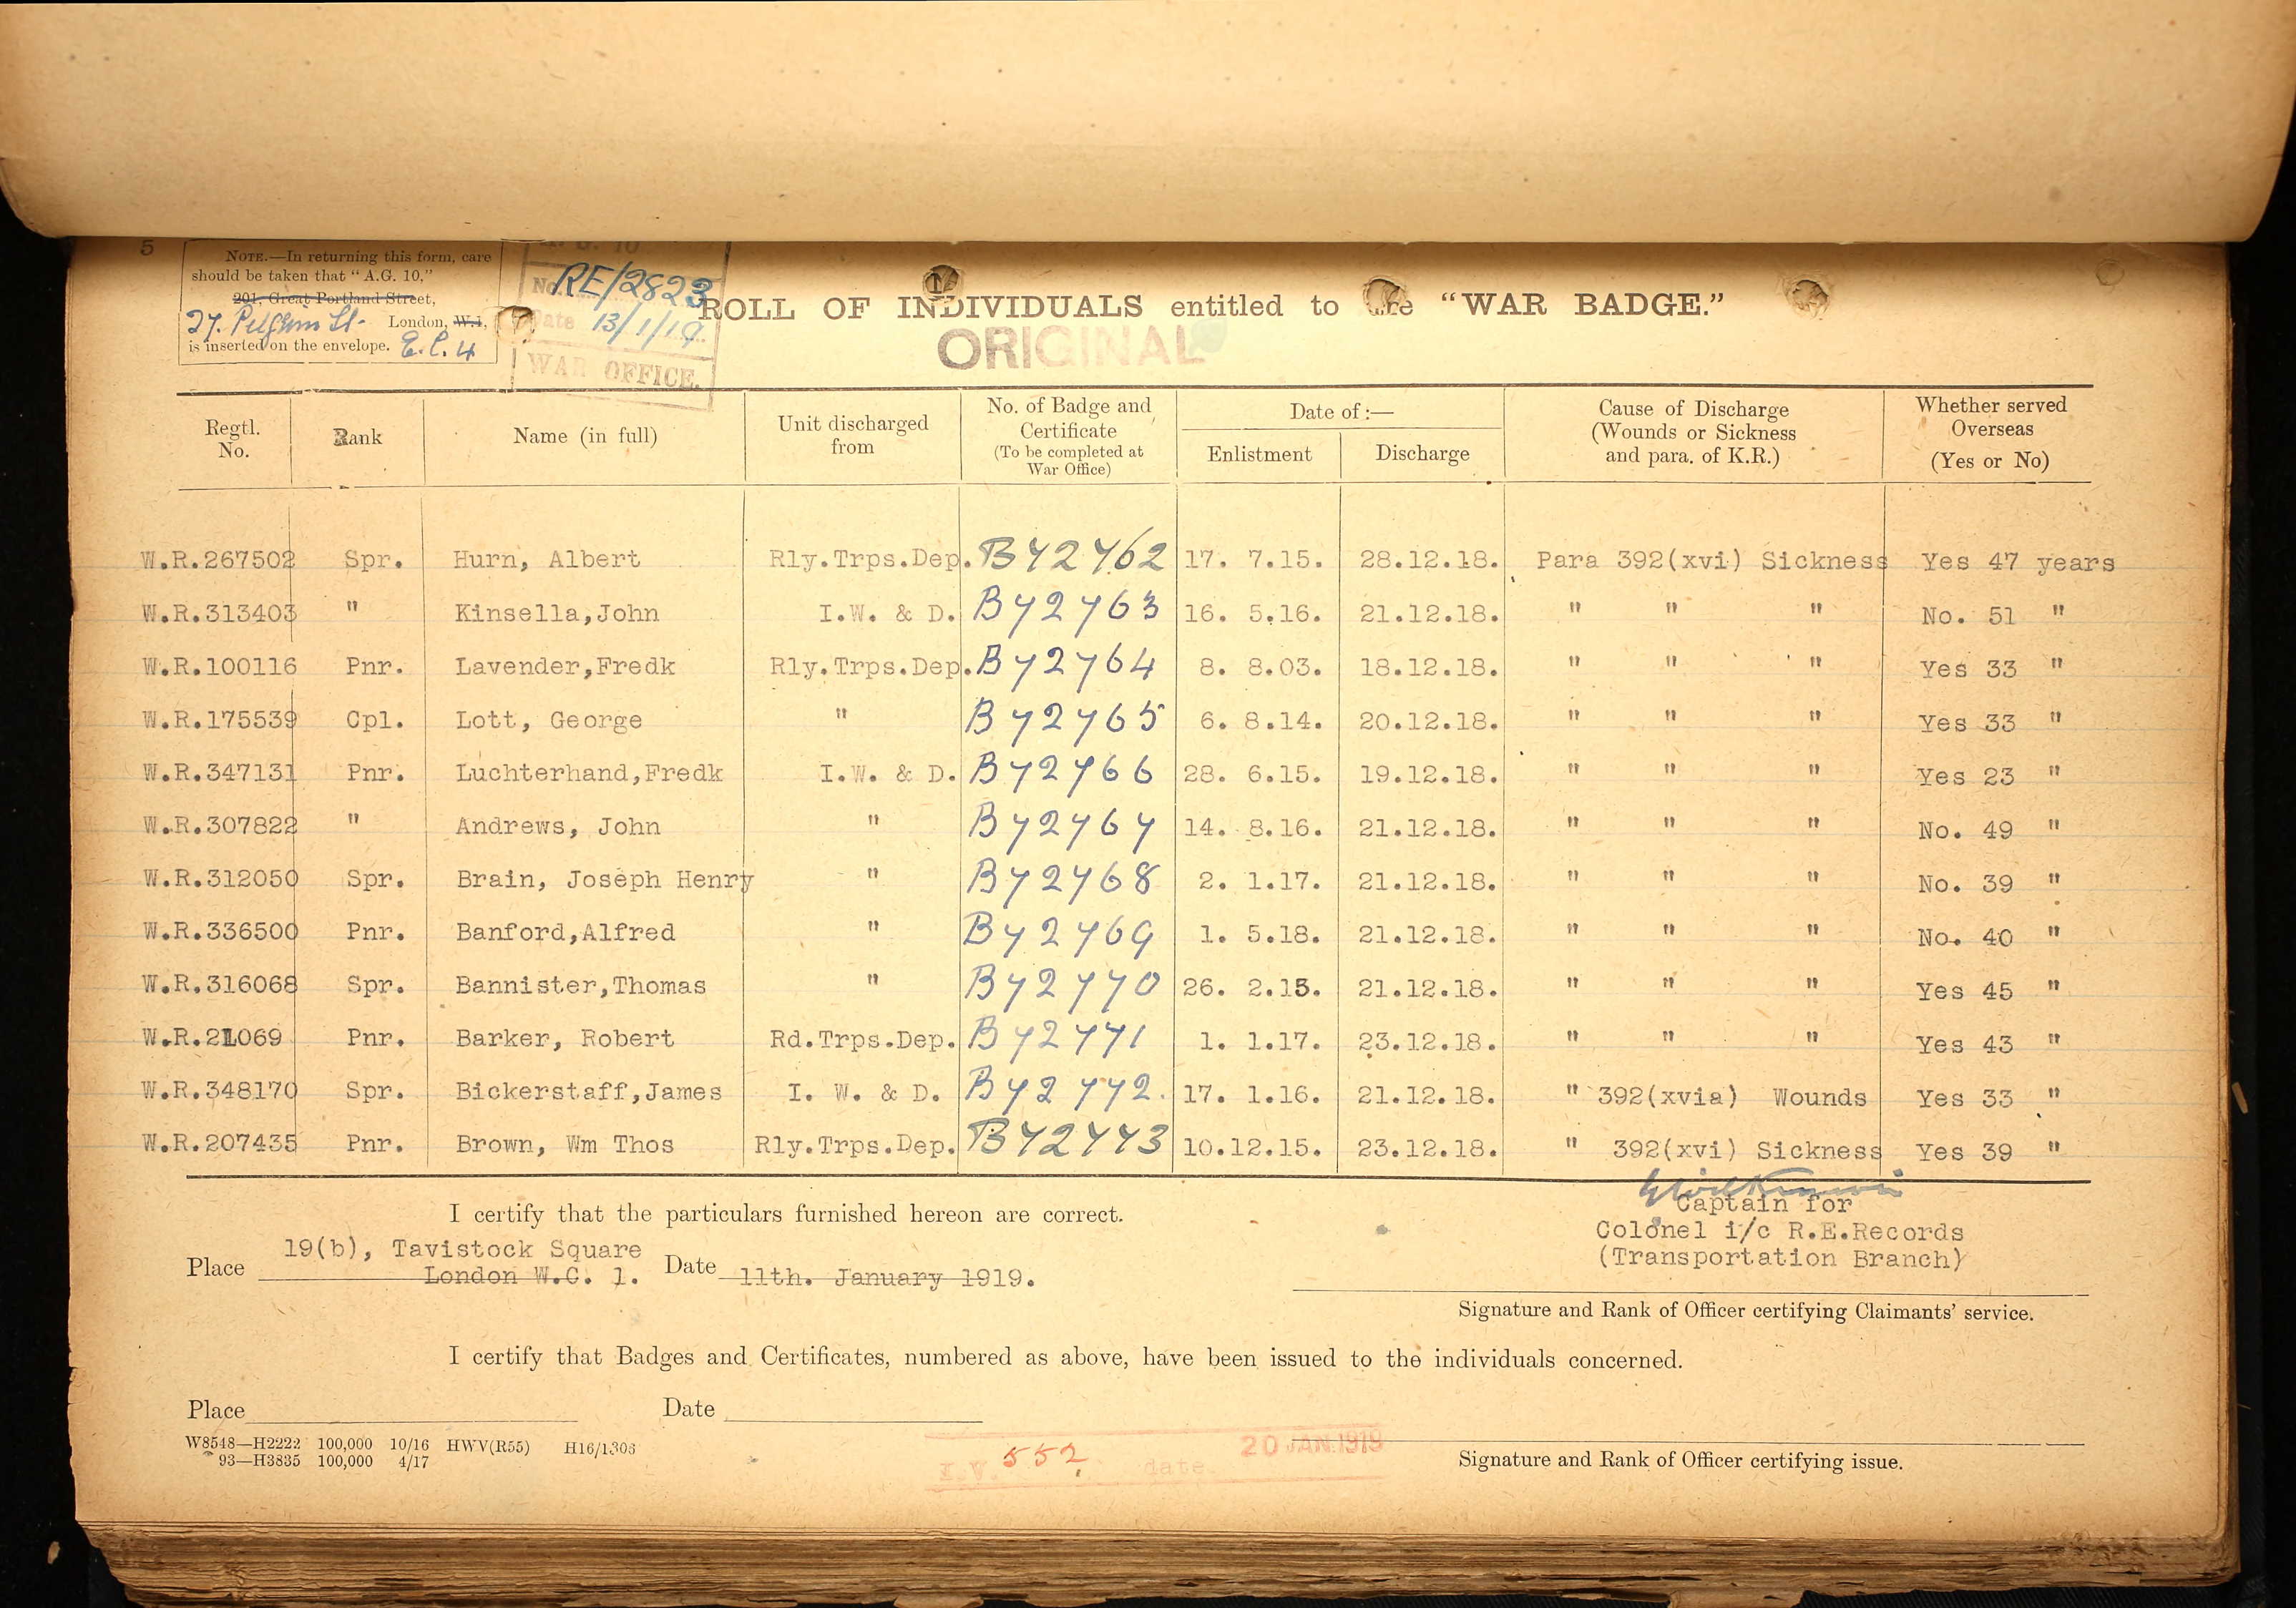 5
NOTE.—In returning this form, care
should be taken that "A.G. 10,"
201, Great Portland Street,
27. Pilgrim St. London, W.1,
is inserted on the envelope. E.C.4
No. RE/2823
Date 13/1/19
WAR OFFICE.
ROLL OF INDIVIDUALS entitled to the "WAR BADGE."
ORIGINAL
Regtl. No. Rank Name (in full) Unit discharged from No. of Badge and Certificate (To be completed at War Office) Date of:— Enlistment Discharge Cause of Discharge (Wounds or Sickness and para. of K.R.) Whether served Overseas (Yes or No)
W.R.267502 Spr. Hurn, Albert Rly.Trps.Dep. B 72762 17. 7.15. 28.12.18. Para 392(xvi) Sickness Yes 47 years
W.R.313403 " Kinsella,John I.W. & D. B 72763 16. 5.16. 21.12.18. " " " No. 51 "
W.R.100116 Pnr. Lavender,Fredk Rly.Trps.Dep. B 72764 8. 8.03. 18.12.18. " " " Yes 33 "
W.R.175539 Cpl. Lott, George " B 72765 6. 8.14. 20.12.18. " " " Yes 33 "
W.R.347131 Pnr. Luchterhand,Fredk I.W. & D. B 72766 28. 6.15. 19.12.18. " " " Yes 23 "
W.R.307822 " Andrews, John " B 72767 14. 8.16. 21.12.18. " " " No. 49 "
W.R.312050 Spr. Brain, Joseph Henry " B 72768 2. 1.17. 21.12.18. " " " No. 39 "
W.R.336500 Pnr. Banford,Alfred " B 72769 1. 5.18. 21.12.18. " " " No. 40 "
W.R.316068 Spr. Bannister,Thomas " B 72770 26. 2.15. 21.12.18. " " " Yes 45 "
W.R.21069 Pnr. Barker, Robert Rd.Trps.Dep. B 72771 1. 1.17. 23.12.18. " " " Yes 43 "
W.R.348170 Spr. Bickerstaff,James I. W. & D. B 72772. 17. 1.16. 21.12.18. " 392(xvia) Wounds Yes 33 "
W.R.207435 Pnr. Brown, Wm Thos Rly.Trps.Dep. B 72773 10.12.15. 23.12.18. " 392(xvi) Sickness Yes 39 "
I certify that the particulars furnished hereon are correct.
Captain for
Colonel i/c R.E.Records
(Transportation Branch)
Place 19(b), Tavistock Square
London W.C. 1. Date 11th. January 1919.
Signature and Rank of Officer certifying Claimants' service.
I certify that Badges and Certificates, numbered as above, have been issued to the individuals concerned.
Place Date
W8548—H2222 100,000 10/16 HWV(R55) H16/1308
93—H3835 100,000 4/17
I.V. 552 date 20 JAN 1919
Signature and Rank of Officer certifying issue.